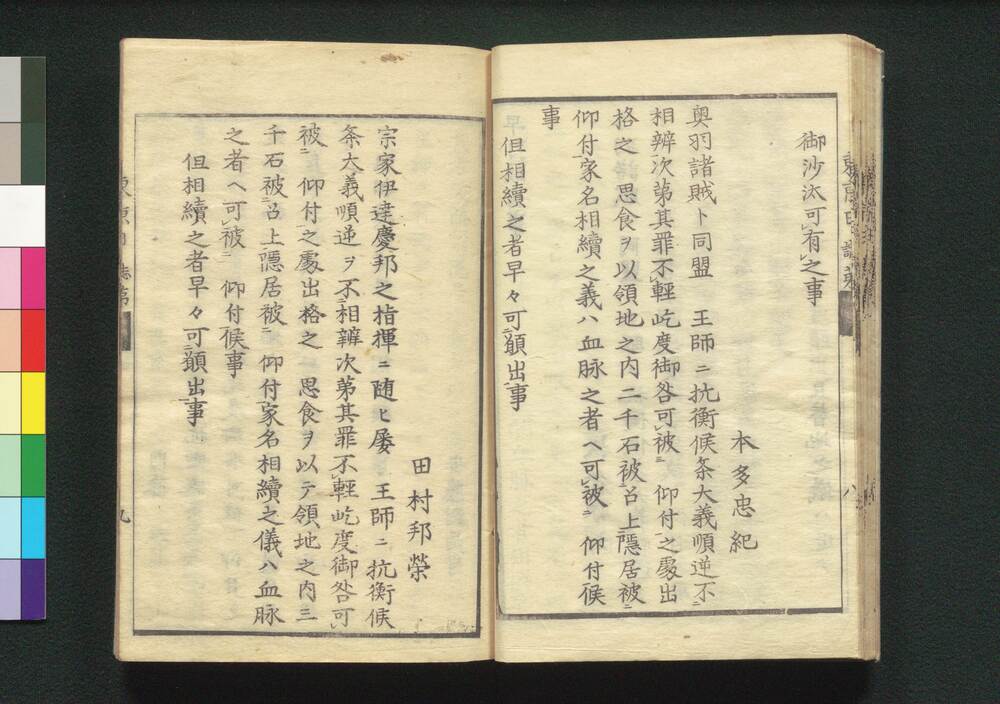 御沙汰可有之事
本多忠紀
奥羽諸賊ト同盟　王師ニ抗衡候条大義順逆不ニ
相辨次第其罪不輕屹度御咎可被ニ　仰付之處出
格之　思食ヲ以領地之内二千石被召上隠居被ニ
仰付家名相續之義ハ血脉之者ヘ可被ニ　仰付候
事
但相續之者早々可願出事
田村邦榮
宗家伊達慶邦之指揮ニ随ヒ屡　王師ニ抗衡候
条大義順逆ヲ不相辨次第其罪不輕屹度御咎可
被ニ　仰付之處出格之　思食ヲ以テ領地之内三
千石被ニ召上隠居被ニ　仰付家名相續之儀ハ血脉
之者ヘ可被ニ　仰付候事
但相續之者早々可ニ願出事
八
九